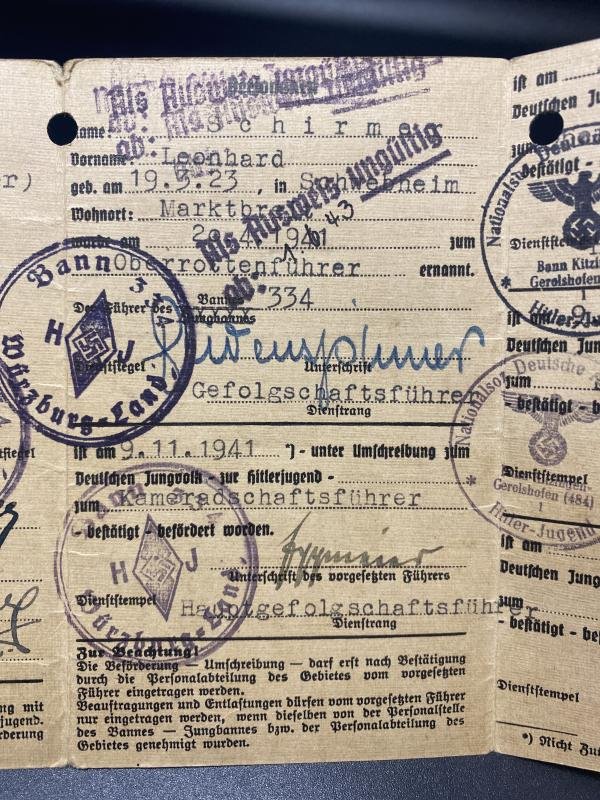 Als Ausweis ungültig
ab:
Name: Schirmer
Vorname: Leonhard
geb. am 19.3.23, in Schwebheim
Wohnort:
wurde am 20.4.1941 zum
Oberrottenführer ernannt.
Der Führer des Bannes 334
Jungbannes
Als Ausweis ungültig
ab:
Bann 334
HJ
Würzburg-Land
Dienstsiegel Unterschrift
Gefolgschaftsführer
Dienstrang
ist am 9.11.1941 *) - unter Umschreibung zum
Deutschen Jungvolk - zur Hitlerjugend -
zum Kameradschaftsführer
- bestätigt - befördert worden.
Bann 334
HJ
Würzburg-Land
Unterschrift des vorgesetzten Führers
Dienststempel Hauptgefolgschaftsführer
Dienstrang
Zur Beachtung!
Die Beförderung — Umschreibung — darf erst nach Bestätigung
durch die Personalabteilung des Gebietes vom vorgesetzten
Führer eingetragen werden.
Beauftragungen und Entlastungen dürfen vom vorgesetzten Führer
nur eingetragen werden, wenn dieselben von der Personalstelle
des Bannes — Jungbannes bzw. der Personalabteilung des
Gebietes genehmigt wurden.
ist am
Deutschen Jun
- bestätigt -
Dienstste
Bann Kitzi
Gerolshofen
1
Hitler-Ju
ist am
Deutschen Jun
zum
- bestätigt - be
Nationalsoz. Deutsche
Dienststempel
Gerolshofen (484)
1
Hitler-Jugend
ist am
Deutschen Jung
zum
- bestätigt - bef
Dienststempel
*) Nicht Zut